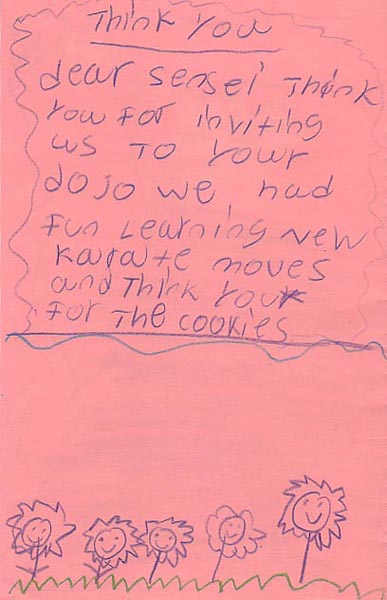 Think you
dear sensei Think
you for inviting
us to your
dojo we had
fun learning new
karate moves
and Think you
for The cookies